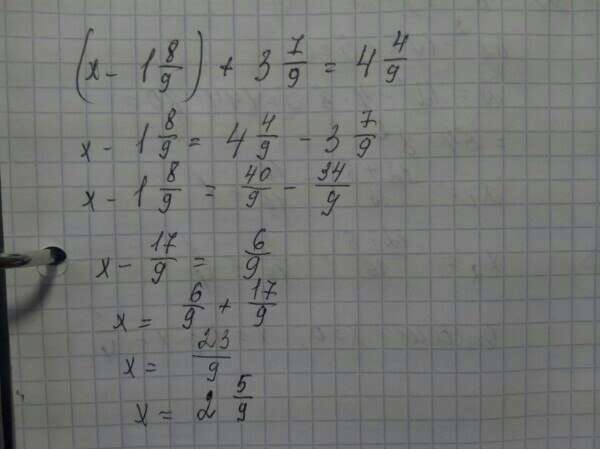 (x - 1 8/9) + 3 7/9 = 4 4/9
x - 1 8/9 = 4 4/9 - 3 7/9
x - 1 8/9 = 40/9 - 34/9
x - 17/9 = 6/9
x = 6/9 + 17/9
x = 23/9
x = 2 5/9